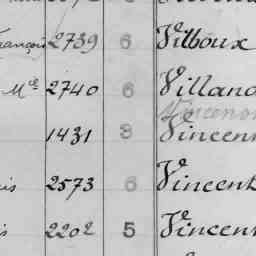 François 2739 6 Vilboux
Mce 2740 6 Villand
1431 8 Vincent
2573 6 Vincent
2202 5 Vincent